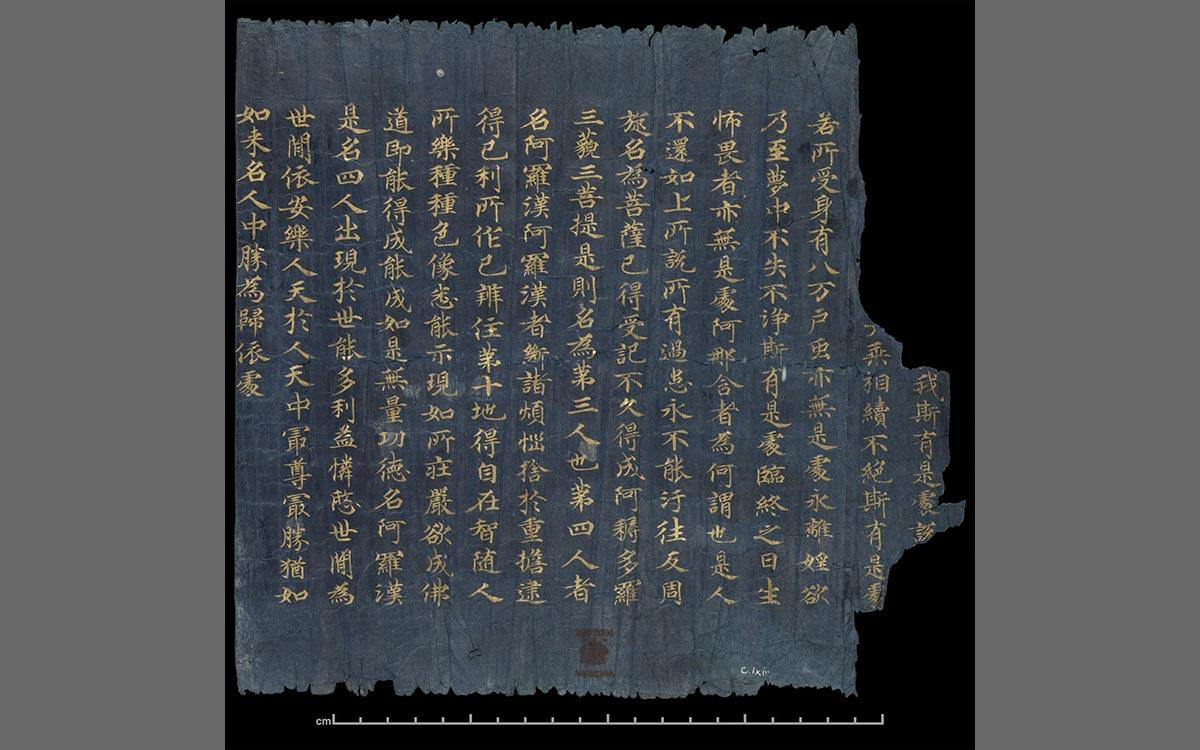 我斯有是處說
乘相續不絕斯有是處
若所受身有八万户虫亦無是處永離婬欲
乃至夢中不失不浄斯有是處臨終之日生
怖畏者亦無是處阿那含者為何謂也是人
不還如上所說所有過患永不能汙往反周
旋名為菩薩已得受記不久得成阿耨多羅
三藐三菩提是則名為苐三人也苐四人者
名阿羅漢阿羅漢者斷諸煩惱捨於重擔逮
得已利所作已辦住苐十地得自在智随人
所樂種種色像悉能示現如所莊嚴欲成佛
道即能得成能成如是無量功德名阿羅漢
是名四人出現於世能多利益憐愍世間為
世間依安樂人天於人天中冣尊冣勝猶如
如来名人中勝為歸依處
C.lxiii
cm